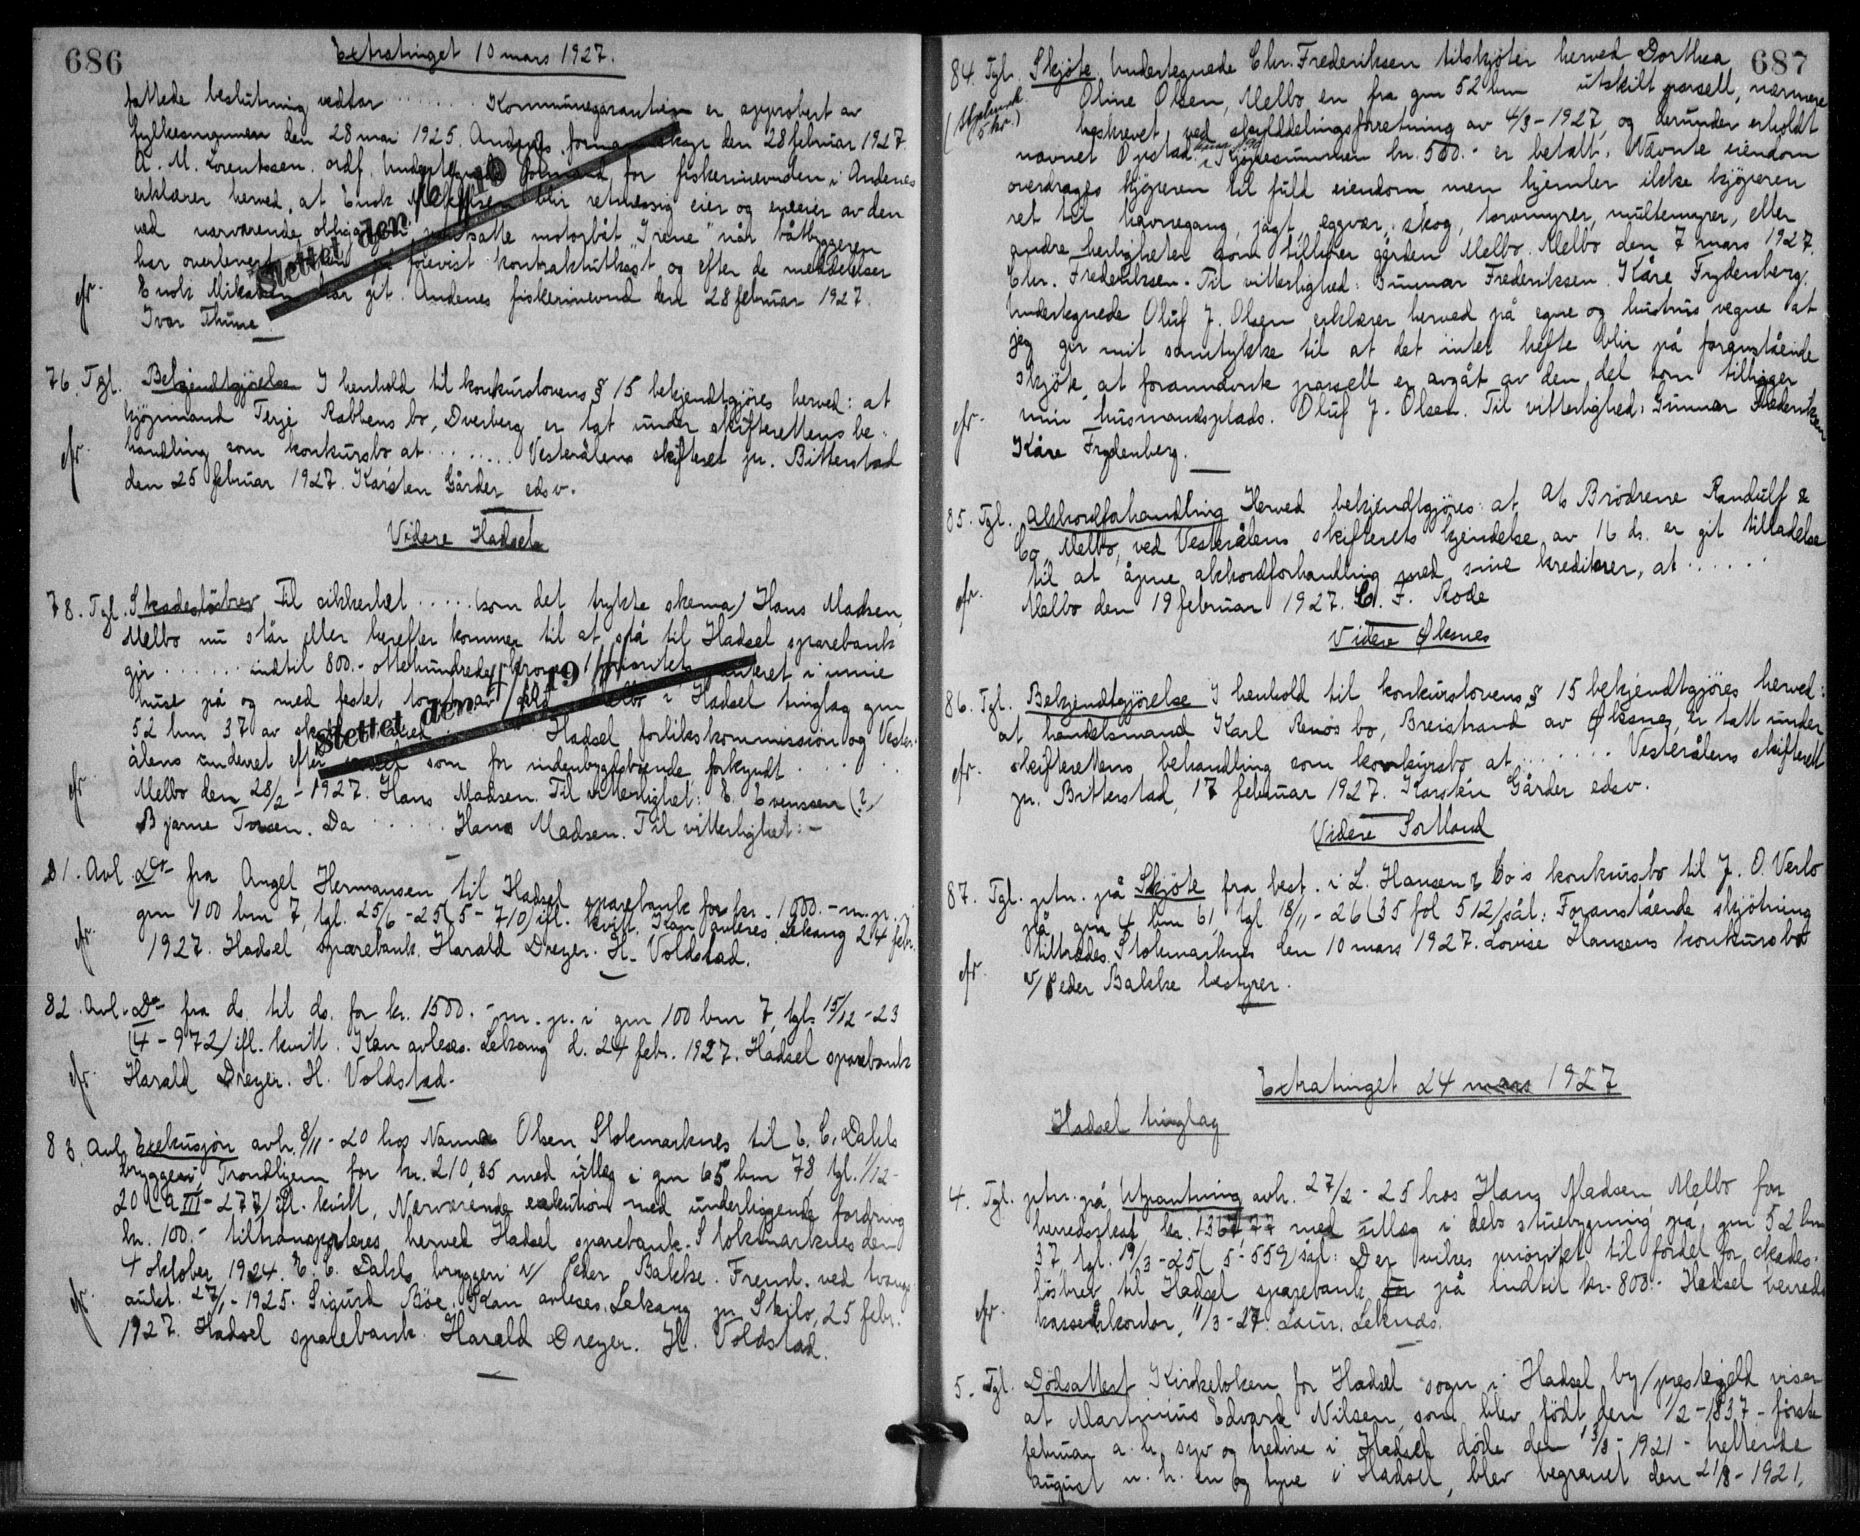 686
Extratinget 10 mars 1927.
fattede beslutning vedtar ........ Kommunegarantien er approbert av
fylkesmannen den 28 mai 1925. Andenes formannskap den 28 februar 1927.
A. M. Lorentsen. ordf. Undertegnede formand for fiskerinevnden i Andenes
erklærer herved, at Enok Mikalsen blir retmessig eier og eneeier av den
ved nærværende obligation pantsatte motorbåt "Irene" når båtbyggeren
har overlevert forevist kontraktutkast og efter de meddelelser
Enok Mikalsen har git. Andenes fiskerinevnd den 28 februar 1927.
Ivar Thune
Slettet den 19
76. Tgl. Bekjendtgjörelse I henhold til konkurslovens § 15 bekjendtgjöres herved: at
kjöpmand Terje Rabbens bo, Dverberg er tat under skifterettens be-
handling som konkursbo at ........ Vesterålens skifteret pr. Bitterstad
den 25 februar 1927. Karsten Gårder edsv.
Videre Hadsel
78. Tgl. Skadeslösbrev Til sikkerhet ..... (som det trykte skema) Hans Madsen,
Melbo nu står eller herefter kommer til at stå til Hadsel sparebank
gir ....... indtil 800.- ottehundrede kroner 1 prioritets panteret i mine
huse på og med festet tomt av Melbo i Hadsel tinglag gnr
52 bnr 37 av skyld Hadsel forlikskommission og Vester-
ålens underret efter varsel som for indenbygdsboende forkyndt .....
Melbo den 28/2-1927. Hans Madsen. Til vitterlighet: E. Evenssen (?)
Bjarne Torsen. Da ...... Hans Madsen. Til vitterlighet: -
Slettet den 19
81. Avl. Do fra Angel Hermansen til Hadsel sparebank for kr. 1000.- m. p. i
gnr 100 bnr 7, tgl. 25/6-25 (5-710) ifl. kvitt. Kan avleses. Lekang 24 febr.
1927. Hadsel sparebank. Harald Dreyer. H. Voldstad.
82. Avl. Do fra ds. til ds. for kr. 1500.- m. p. i gnr 100 bnr 7, tgl. 15/12-23
(4-972) ifl. kvitt. Kan avleses. Lekang d. 24 febr. 1927. Hadsel sparebank
Harald Dreyer. H. Voldstad.
83. Avl. Exekusjon avh. 8/11-20 hos Nanna Olsen Stokmarknes til E. C. Dahls
bryggeri, Trondhjem for kr. 210,85 med utlæg i gnr 65 bnr 78 tgl. 1/12-
20 (a III-277) ifl. kvitt. Nærværende exekution med underliggende fordring
kr. 100.- tiltransporteres herved Hadsel sparebank. Stokmarknes den
4 oktober 1924. E. C. Dahls bryggeri v/ Peder Bakke. Freml. ved tvangs-
aukt. 27/1-1925. Sigurd Böe. Kan avleses. Lekang pr. Skilv, 25 febr.
1927. Hadsel sparebank. Harald Dreyer. H. Voldstad.
687
84. Tgl. Skjöte Undertegnede Chr. Frederiksen tilskjöter herved Dorthea
(Stpl.merk 5 kr.) Oline Olsen, Melbo en fra gnr 52 bnr utskilt parsell, nærmere
beskrevet ved skylddelingsforretning av 4/3-1927, og derunder erholdt
navnet Öystad. Kjöpesummen kr. 500.- er betalt. Nævnte eiendom
overdrages kjöperen til fuld eiendom men hjemler ikke kjöperen
ret til havnegang, jagt, eggvær, skog, torvmyrer, multemyrer, eller
andre herligheter som tilhörer gården Melbo. Melbo den 7 mars 1927.
Chr. Frederiksen. Til vitterlighed: Gunnar Frederiksen. Kåre Frydenberg.
Undertegnede Oluf J. Olsen erklærer herved på egne og hustrus vegne at
jeg gir mit samtykke til at det intet hefte blir på foranstående
skjöte, at forannævnte parsell er avgåt av den del som tilligger
min husmandsplads. Oluf J. Olsen. Til vitterlighed: Gunnar Frederiksen
Kåre Frydenberg.
85. Tgl. Akkordforhandling Herved bekjendtgjöres: at A/s Brödrene Randulf &
Co, Melbo, ved Vesterålens skifterets kjendelse av 16 ds. er git tilladelse
til at åpne akkordforhandling med sine kreditorer, at ......
Melbo den 19 februar 1927. Rode
Videre Öksnes
86. Tgl. Bekjendtgjörelse I henhold til konkurslovens § 15 bekjendtgjöres herved:
at handelsmand Karl Renös bo, Breistrand av Öksnes, er tatt under
skifterettens behandling som konkursbo at ....... Vesterålens skifterett
pr. Bitterstad, 17 februar 1927. Karsten Gårder edsv.
Videre Sortland
87. Tgl. ptn. på Skjöte fra best. i L. Hansen & Co's konkursbo til J. O. Verlo
på gnr 4 bnr 61, tgl 18/11-26 (35 fol 512) sål: Foranstående skjötning
tiltrædes. Stokmarknes den 10 mars 1927. Lovise Hansens konkursbo
v/ Peder Bakke bestyrer.
Extratinget 24 mars 1927
Hadsel tinglag
4. Tgl. ptn. på Utpantning avh. 27/2-25 hos Hans Madsen, Melbo for
herredsskat kr. med utlæg i dets stuebygning på gnr 52 bnr
37, tgl. 19/3-25 (5-559) sål: Der vikes prioritet til fordel for skades-
lösbrev til Hadsel sparebank, på indtil kr. 800.- Hadsel herreds-
kassekontor, 11/3-27. Laur. Leknes.
5. Tgl. Dödsattest Kirkeboken for Hadsel sogn i Hadsel by/prestegjeld viser
at Martinius Edvard Nilsen, som blev födt den 1/2-1837 - förste
februar a. h. syv og tredive i Hadsel döde den 13/8-1921 - trettende
august n. h. en og tyve i Hadsel, blev begravet den 21/8-1921,